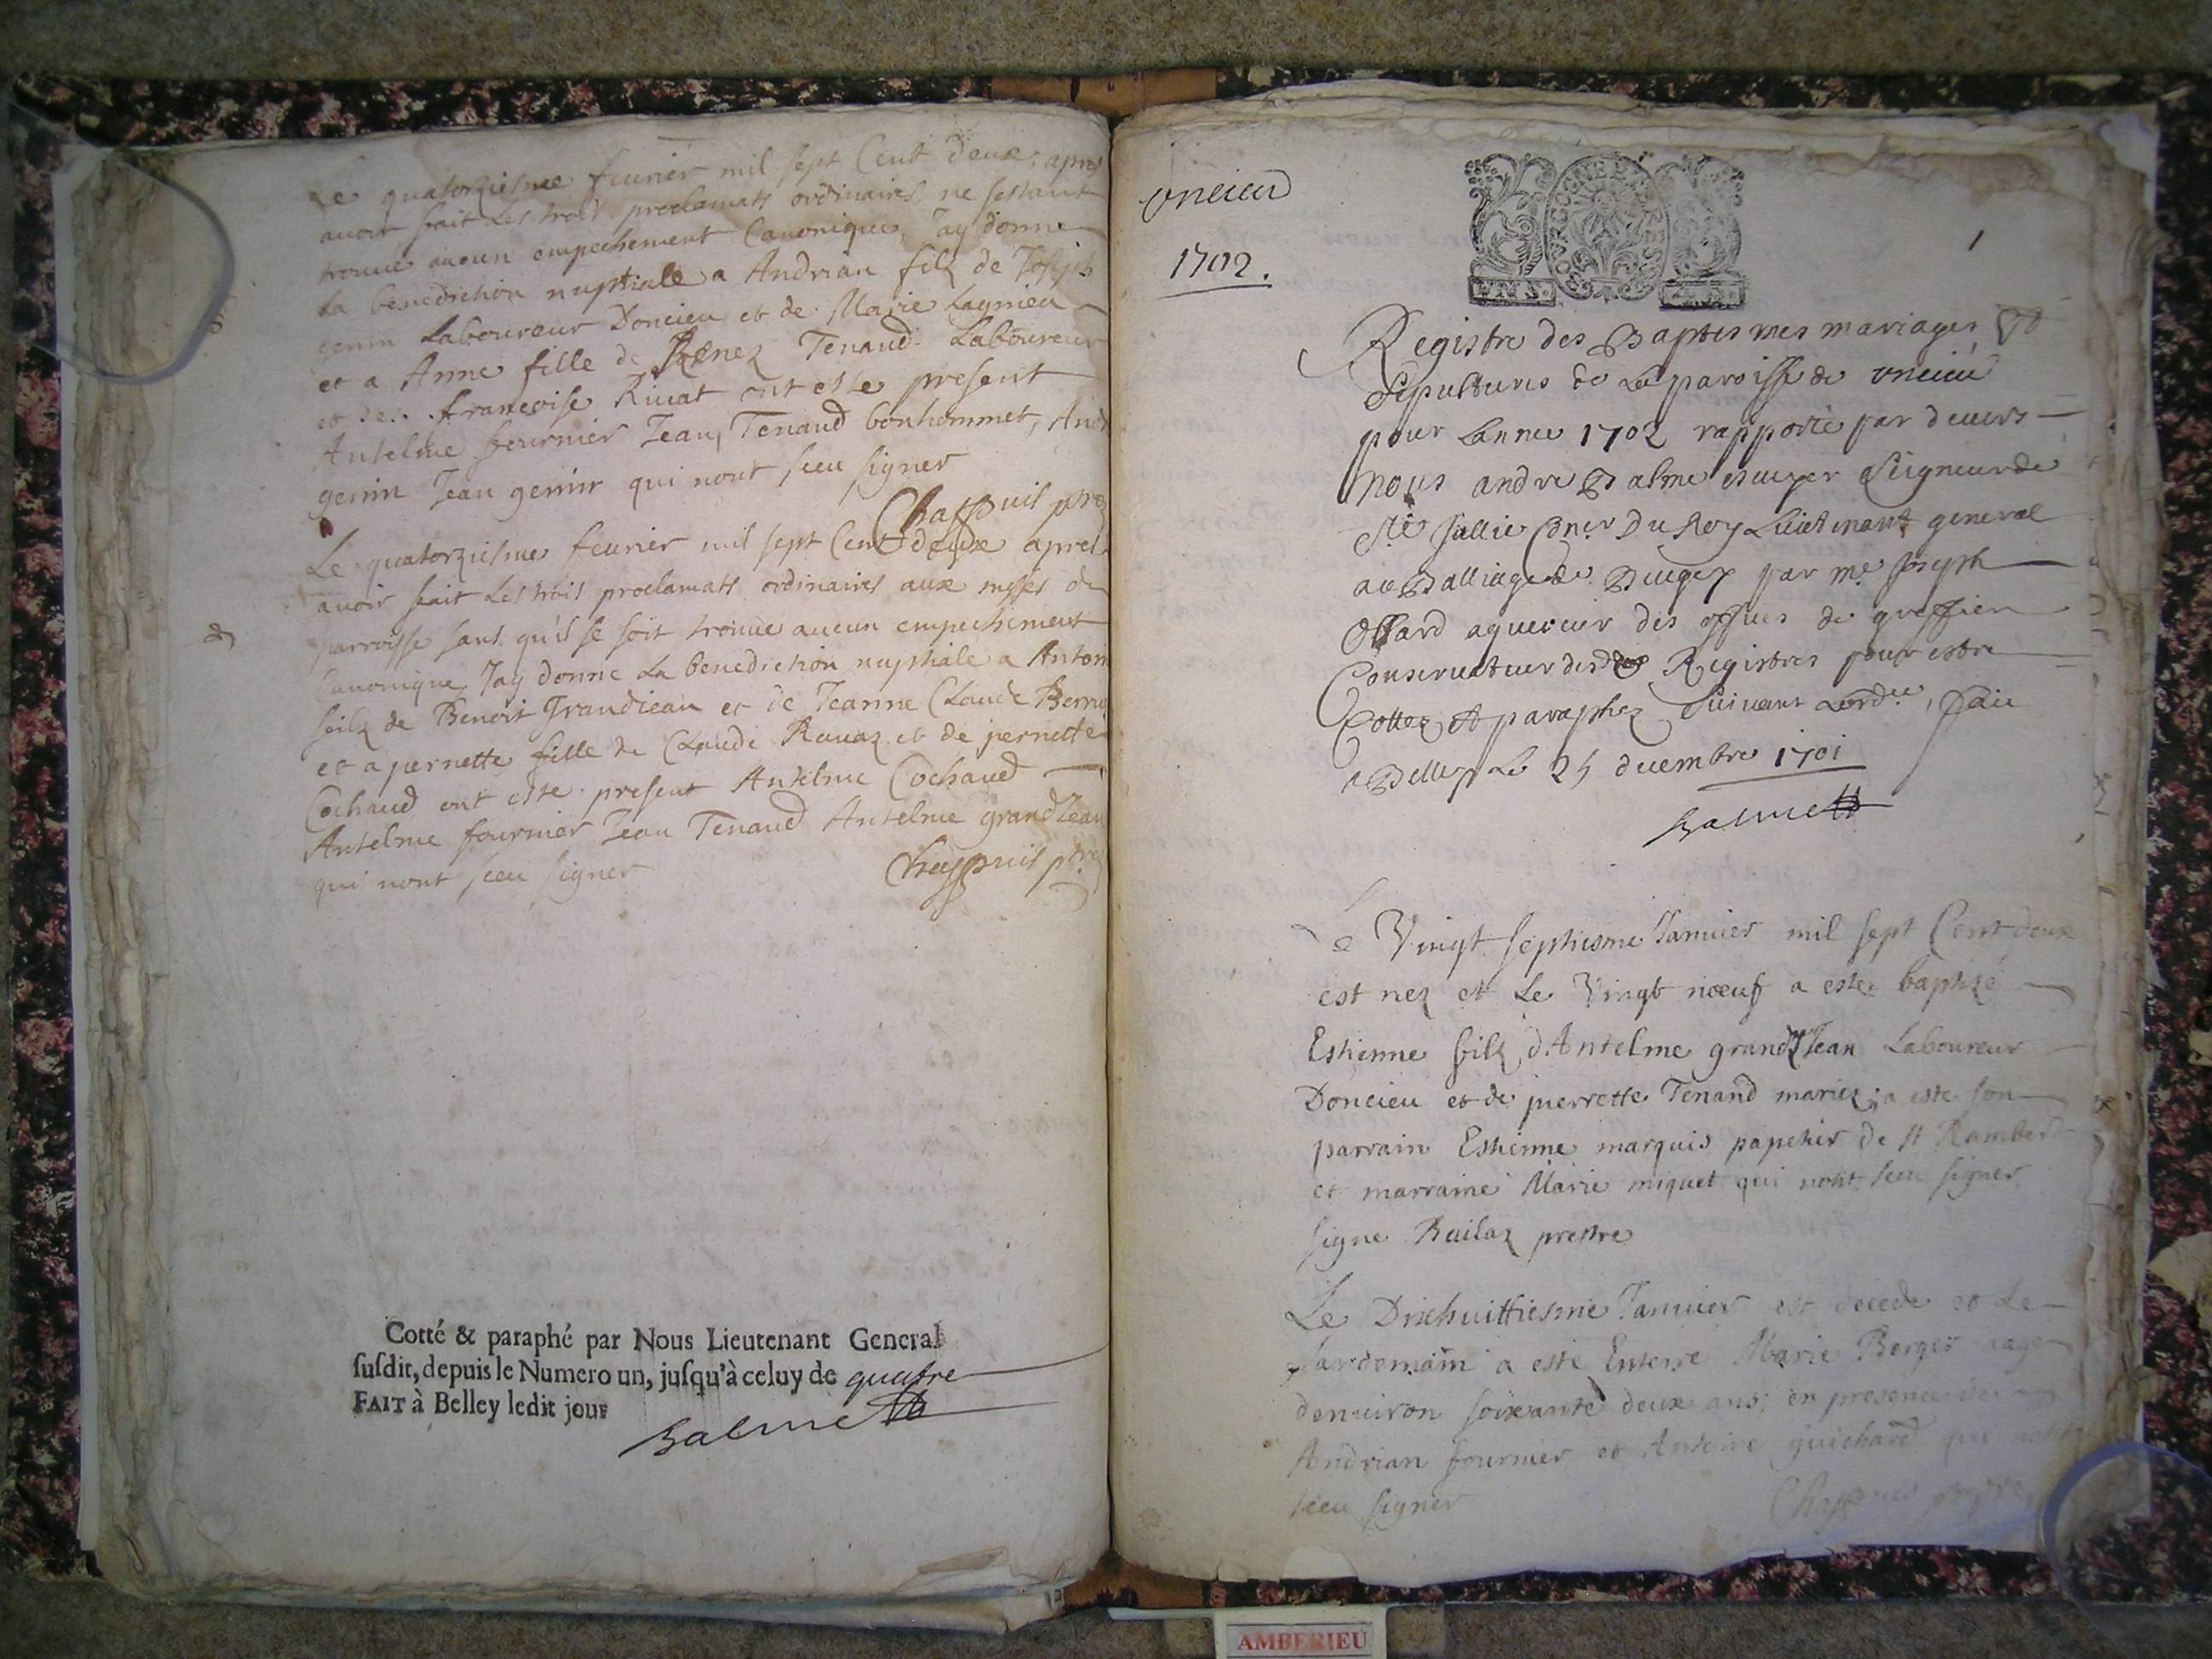 Le quatorziesme feurier mil sept Cent deux, apres
auoir fait les trois proclamats ordinaires ne sestant
trouué aucun empechement Canonique, Jay donne
La benediction nuptiale a Andrian filz de Joseph
genin Laboureur Doncieu et de Marie Lagnieu
et a Anne fille de Renez Tenand Laboureur
et de francoise Riuat ont este present
Antelme fournier Jean Tenand bonhommet, And
genin Jean genin qui nont sceu signer
Chappuis ptre
Le quatorziesme feurier mil sept Cent deux apres
auoir fait Les trois proclamats ordinaires aux messes de
parroisse sans qu'il se soit trouue aucun empechement
Canonique, Jay donne La benediction nuptiale a Antoin
filz de Benoit Grandjean et de Jeanne Claude
et a pernette fille de Claude Rauaz et de pernette
Cochaud ont este present Antelme Cochaud
Antelme fournier Jean Tenand Antelme grandJean
qui nont sceu signer
Chappuis ptre
Cotté & paraphé par Nous Lieutenant General
susdit, depuis le Numero un, jusqu'à celuy de quatre
FAIT à Belley ledit jour
Balme
Uncieu
1702.
BOVRGOGNE
1
Registre des Baptesmes mariages Et
Sepultures de La paroisse de uncieu
pour Lannee 1702 rapporté par deuers
Nous andre Balme escuyer Seigneur de
Ste Jullie Coner Du Roy Lieutenant general
au Balliage de Bugey par me Joseph
aquereur des offices de greffier
Conseruateur desd Registres pour estre
Cottez Et paraphez Suiuant Lordce, Fait
a Belley Le 25 decembre 1701
Balme
Le Vingt septiesme Januier mil sept Cent deux
est nez et Le Vingt noeuf a este baptizé
Estienne filz d'Antelme grandJean Laboureur
Doncieu et de pierrette Tenand mariez; a este son
parrain Estienne marquis papetier de st Rambert
et marraine Marie miguet qui nont sceu signer
signe Builaz prestre
Le Dixhuittiesme Januier est decede et Le
Lardemain a esté Enterre Marie Berger aage
denuiron soixante deux ans; en presence de
Andrian fournier et Antoine guichard qui nont
sceu signer
Chappuis ptre
AMBERIEU